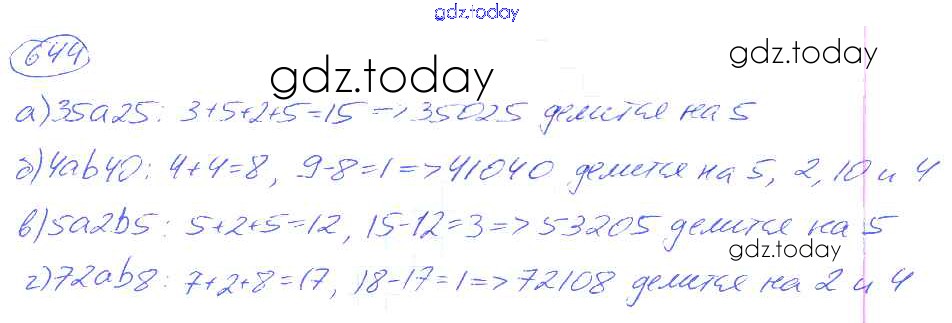 gdz.today
644
gdz.today
gdz.today
а) 35a25: 3+5+2+5=15 => 35025 делится на 5
б) 4ab40: 4+4=8, 9-8=1 => 41040 делится на 5, 2, 10 и 4
в) 5a2b5: 5+2+5=12, 15-12=3 => 53205 делится на 5
gdz.today
г) 72ab8: 7+2+8=17, 18-17=1 => 72108 делится на 2 и 4